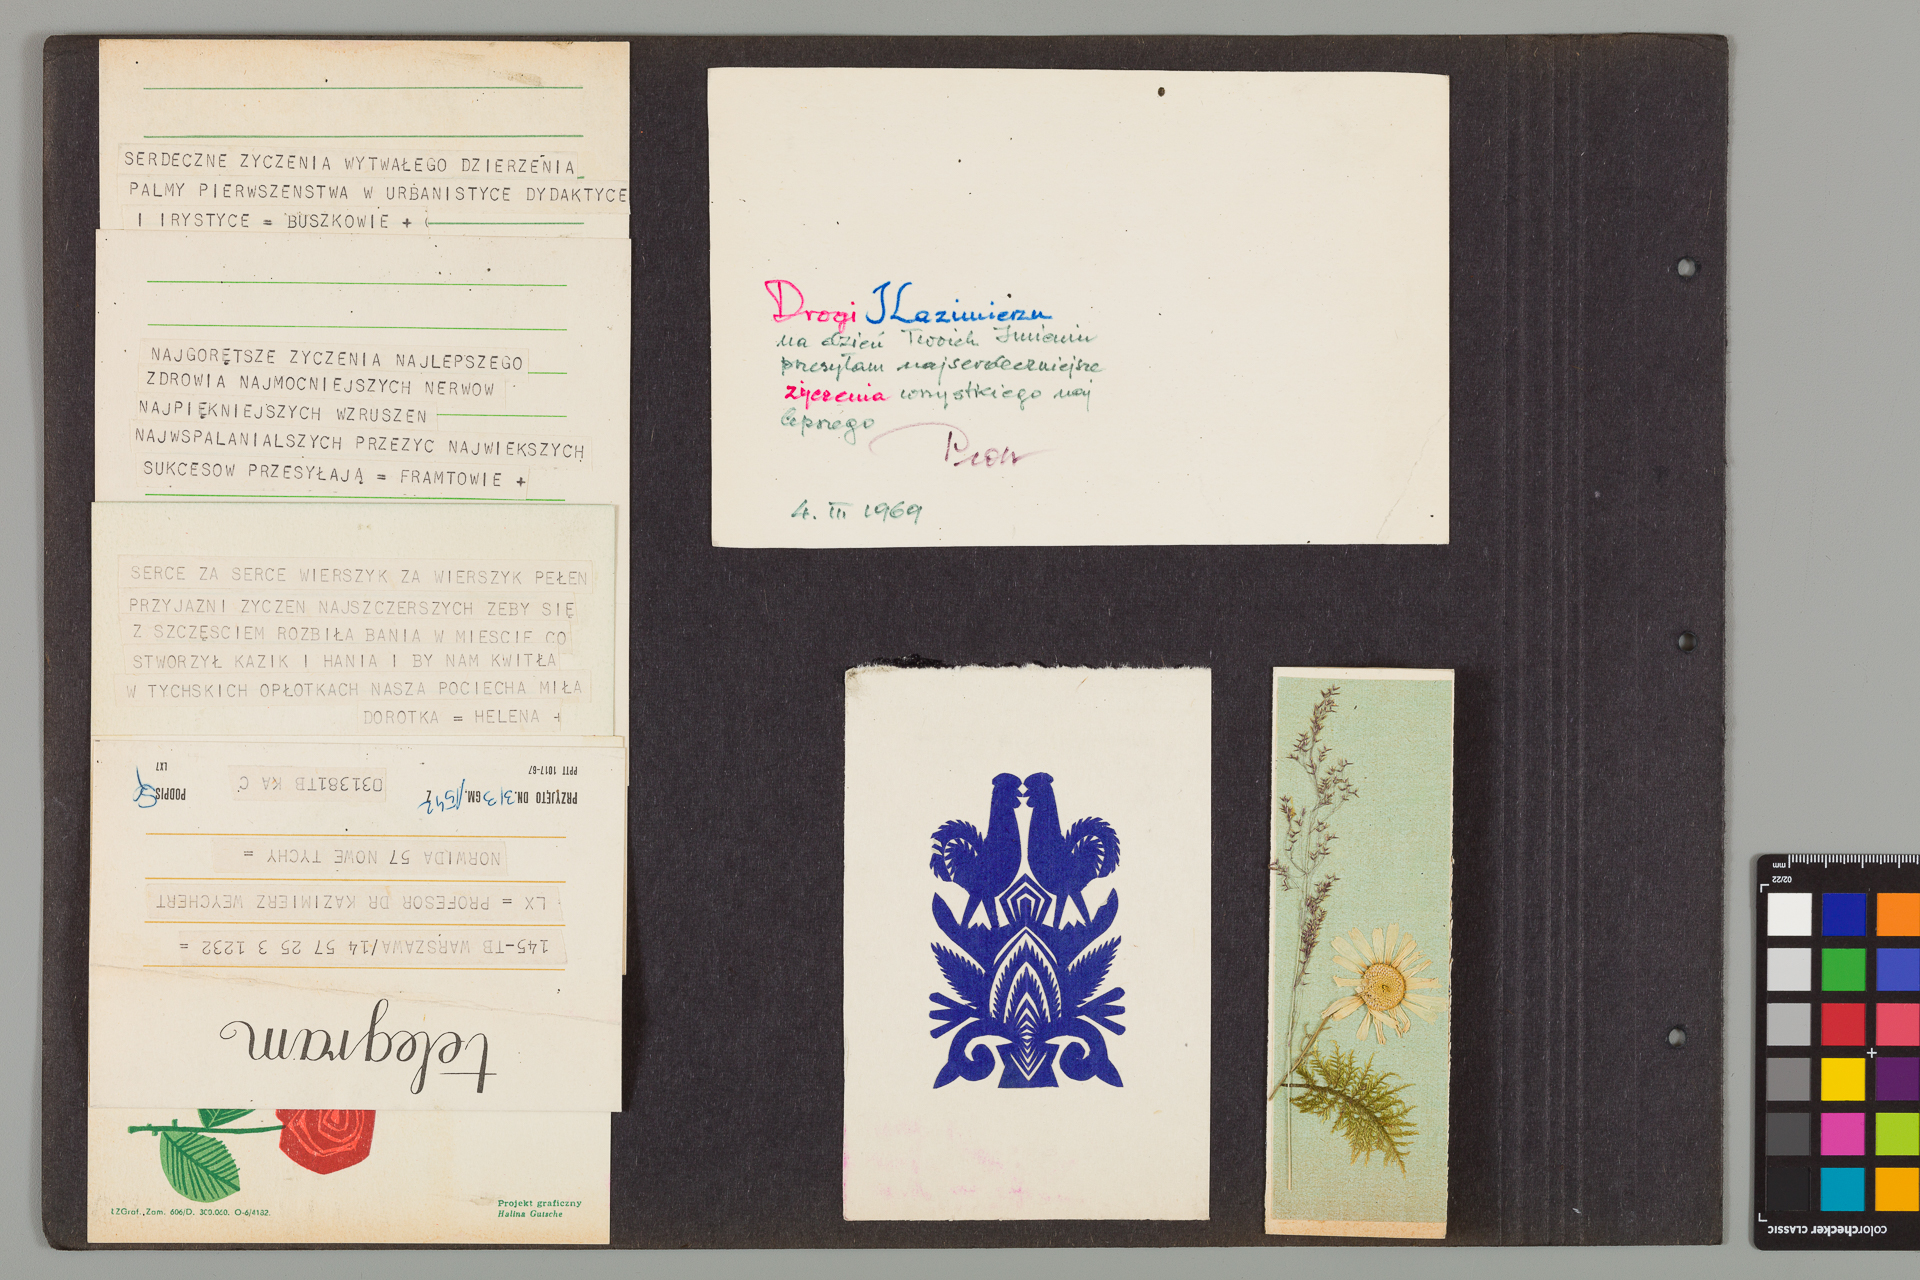 SERDECZNE ZYCZENIA WYTWAŁEGO DZIERZENIA
PALMY PIERWSZENSTWA W URBANISTYCE DYDAKTYCE
I IRYSTYCE = BUSZKOWIE +
NAJGORĘTSZE ZYCZENIA NAJLEPSZEGO
ZDROWIA NAJMOCNIEJSZYCH NERWOW
NAJPIĘKNIEJSZYCH WZRUSZEN
NAJWSPALANIALSZYCH PRZEZYC NAJWIEKSZYCH
SUKCESOW PRZESYŁAJĄ = FRAMTOWIE +
SERCE ZA SERCE WIERSZYK ZA WIERSZYK PEŁEN
PRZYJAZNI ZYCZEN NAJSZCZERSZYCH ZEBY SIĘ
Z SZCZĘSCIEM ROZBIŁA BANIA W MIESCIE CO
STWORZYŁ KAZIK I HANIA I BY NAM KWITŁA
W TYCHSKICH OPŁOTKACH NASZA POCIECHA MIŁA
DOROTKA = HELENA +
telegram
145-TB WARSZAWA/14 57 25 3 1232 =
LX = PROFESOR DR KAZIMIERZ WEYCHERT
NORWIDA 57 NOWE TYCHY =
PRZYJĘTO DN. 3/3 GM. 1547 Z 031381TB KA C PODPIS
PPTT 1017-67 LX7
ŁZGraf. Zam. 606/D. 300.000. O-6/4182.
Projekt graficzny
Halina Gutsche
Drogi Kazimierzu
na dzień Twoich Imienin
przesyłam najserdeczniejsze
życzenia wszystkiego naj
lepszego
Piotr
4. III 1969
mm
02/22
colorchecker CLASSIC